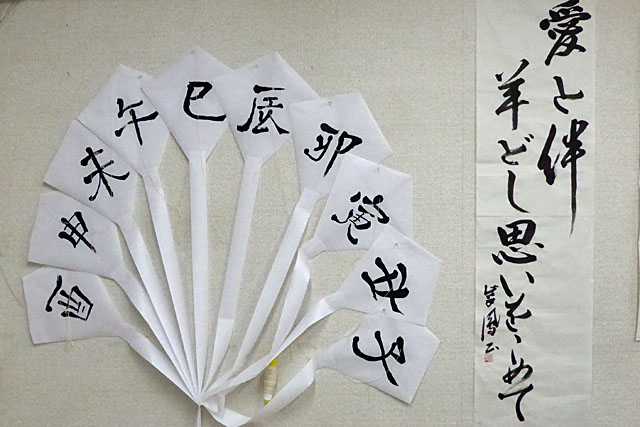 愛と絆
羊どし思いをこめて
子
丑
寅
卯
辰
巳
午
未
申
酉